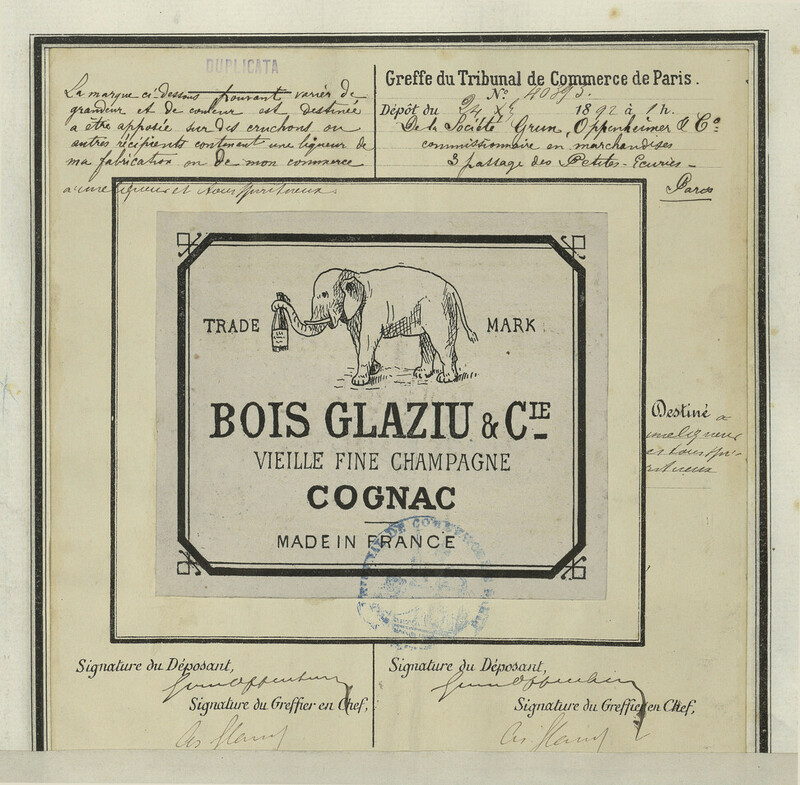 DUPLICATA
La marque ci-dessous pouvant varier de
grandeur et de couleur est destinée
a être apposée sur des cruchons ou
autres récipients contenant une liqueur de
ma fabrication ou de mon commerce
a une liqueur et tous spiritueux
Greffe du Tribunal de Commerce de Paris.
No. 40393.
Dépôt du 24 Xbre 1892 à 1 h.
De la Société Grun, Oppenheimer & Co.
commissionnaire en marchandises
3 passage des Petites-Ecuries -
Paris
TRADE MARK
BOIS GLAZIU & CIE
VIEILLE FINE CHAMPAGNE
COGNAC
MADE IN FRANCE
Destiné a
une liqueur
et tous spi-
ritueux
Signature du Déposant,
Grun Oppenheim
Signature du Greffier en Chef,
Signature du Déposant,
Grun Oppenheim
Signature du Greffier en Chef,